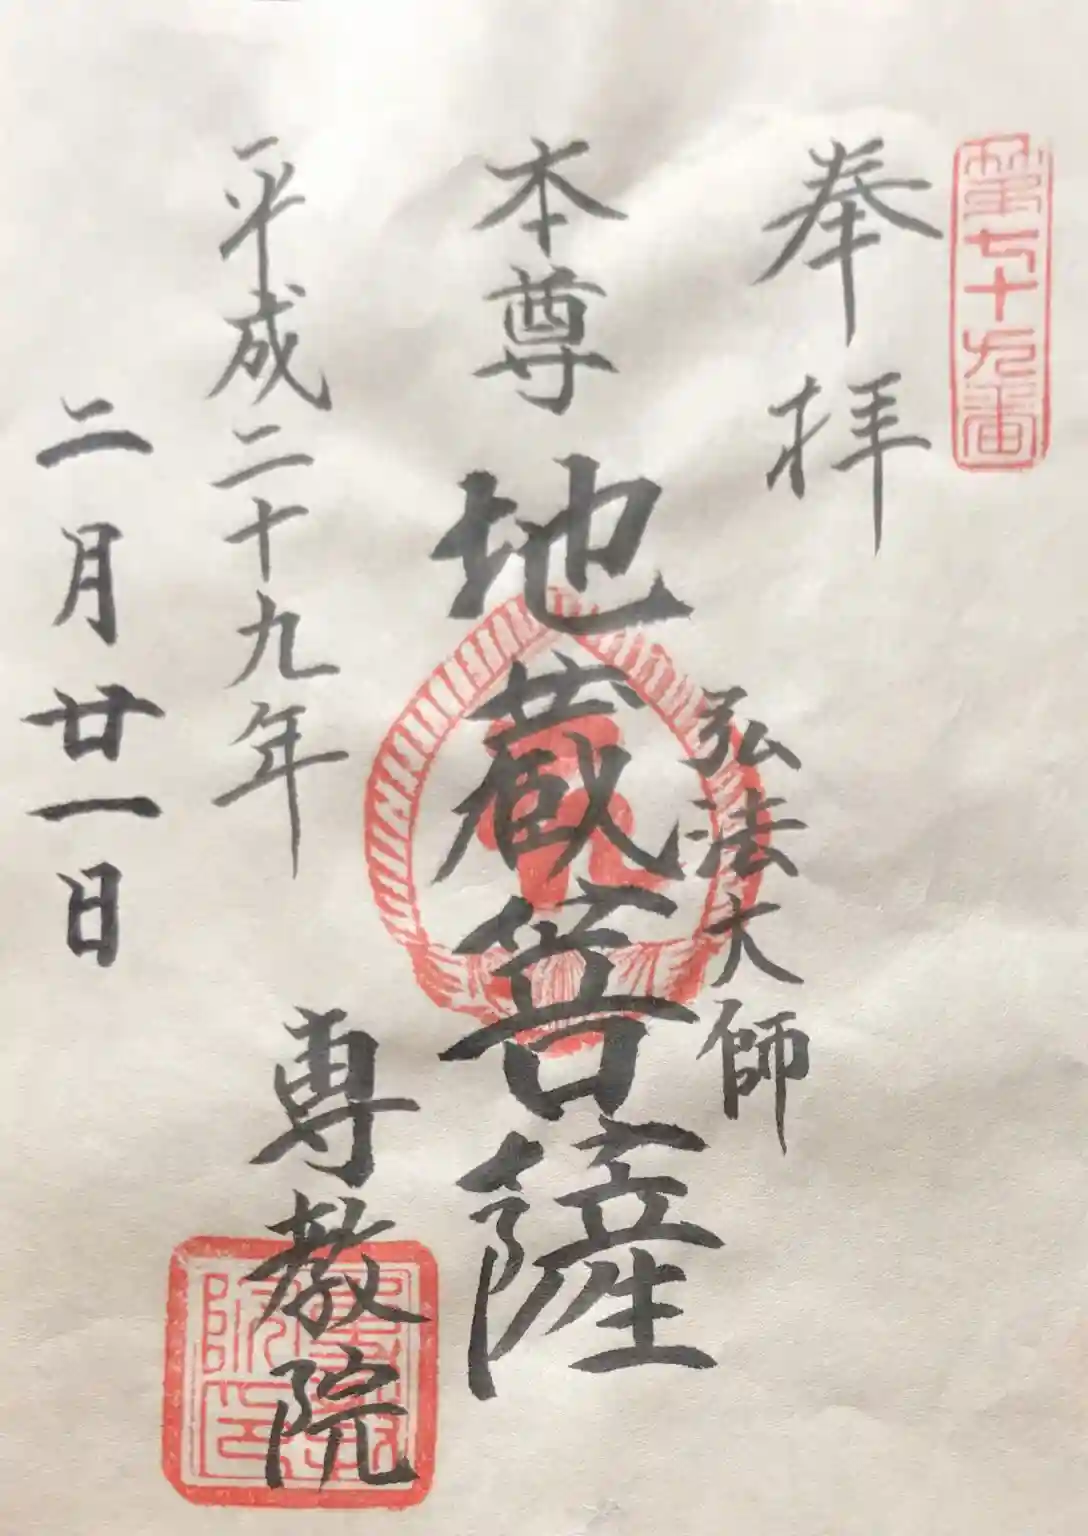 第七十九番
奉拝
弘法大師
本尊 地蔵菩薩
平成二十九年
二月廿一日
専教院
専教院印